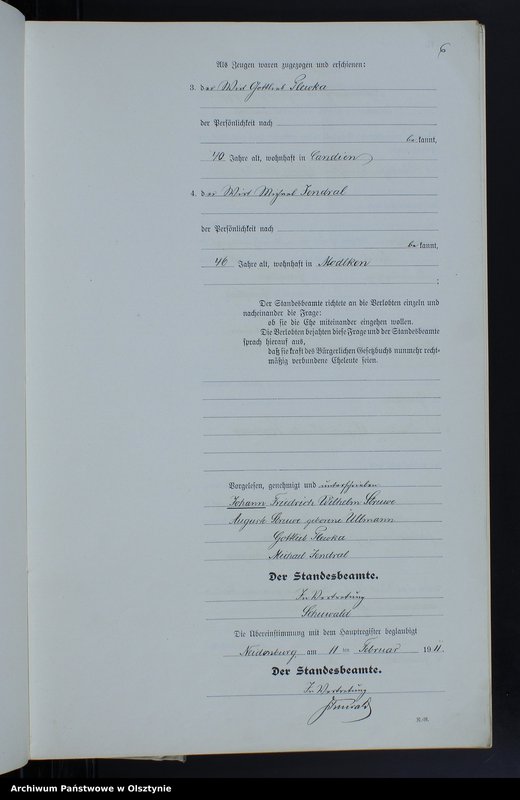 6
Als Zeugen waren zugezogen und erschienen:
3. der Wirt Gottlieb Plewka
der Persönlichkeit nach
be kannt,
40 Jahre alt, wohnhaft in Candien
4. der Wirt Michael Jendral
der Persönlichkeit nach
be kannt,
46 Jahre alt, wohnhaft in Modlken
;
Der Standesbeamte richtete an die Verlobten einzeln und
nacheinander die Frage:
ob sie die Ehe miteinander eingehen wollen.
Die Verlobten bejahten diese Frage und der Standesbeamte
sprach hierauf aus,
daß sie kraft des Bürgerlichen Gesetzbuchs nunmehr recht-
mäßig verbundene Eheleute seien.
Vorgelesen, genehmigt und unterschrieben
Johann Friedrich Wilhelm Struwe
Auguste Struwe geborene Ullmann
Gottlieb Plewka
Michael Jendral
Der Standesbeamte.
In Vertretung
Schuwald
Die Übereinstimmung mit dem Hauptregister beglaubigt
Neidenburg am 11 ten Februar 1911.
Der Standesbeamte.
In Vertretung
Archiwum Państwowe w Olsztynie